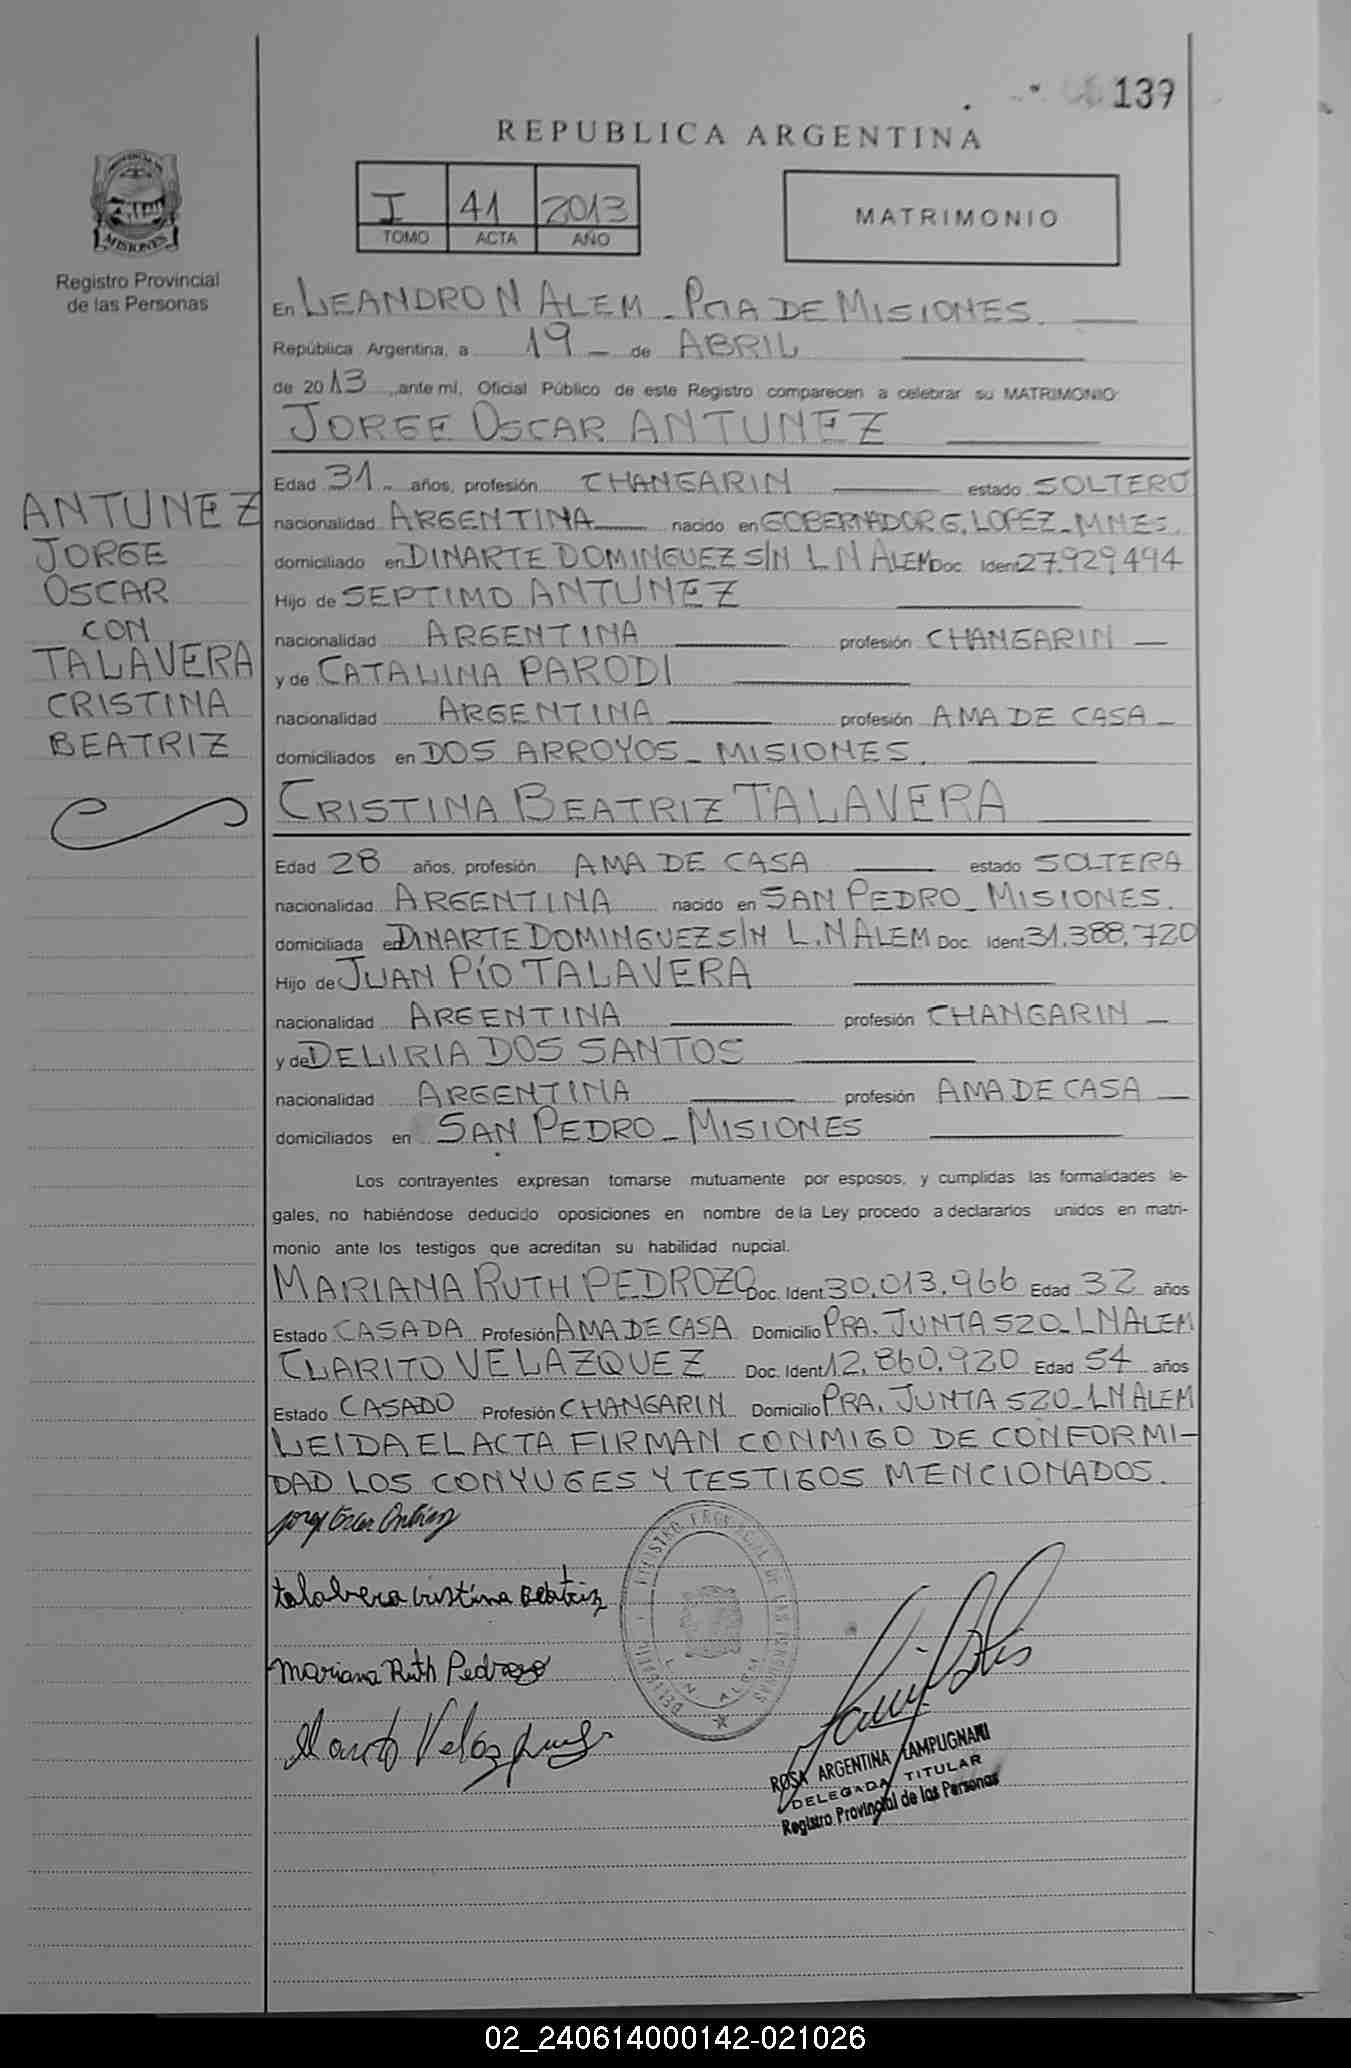 139
REPUBLICA ARGENTINA
I 41 2013
TOMO ACTA AÑO
MATRIMONIO
MISIONES
Registro Provincial
de las Personas
En LEANDRO N ALEM - PCIA DE MISIONES.
República Argentina, a 19 - de ABRIL
de 2013, ante mí, Oficial Público de este Registro comparecen a celebrar su MATRIMONIO:
JORGE OSCAR ANTUNEZ
Edad 31 - años, profesión CHANGARIN estado SOLTERO
nacionalidad ARGENTINA nacido en GOBERNADOR G. LOPEZ - MNES.
domiciliado en DINARTE DOMINGUEZ S/N L N ALEM Doc. Ident 27.929.494
Hijo de SEPTIMO ANTUNEZ
nacionalidad ARGENTINA profesión CHANGARIN
y de CATALINA PARODI
nacionalidad ARGENTINA profesión AMA DE CASA
domiciliados en DOS ARROYOS - MISIONES.
CRISTINA BEATRIZ TALAVERA
Edad 28 años, profesión AMA DE CASA estado SOLTERA
nacionalidad ARGENTINA nacido en SAN PEDRO - MISIONES.
domiciliada en DINARTE DOMINGUEZ S/N L. N ALEM Doc. Ident 31.388.720
Hijo de JUAN PÍO TALAVERA
nacionalidad ARGENTINA profesión CHANGARIN
y de DELIRIA DOS SANTOS
nacionalidad ARGENTINA profesión AMA DE CASA
domiciliados en SAN PEDRO - MISIONES
ANTUNEZ
JORGE
OSCAR
CON
TALAVERA
CRISTINA
BEATRIZ
Los contrayentes expresan tomarse mutuamente por esposos, y cumplidas las formalidades le-
gales, no habiéndose deducido oposiciones en nombre de la Ley procedo a declararlos unidos en matri-
monio ante los testigos que acreditan su habilidad nupcial.
MARIANA RUTH PEDROZO Doc. Ident 30.013.966 Edad 32 años
Estado CASADA Profesión AMA DE CASA Domicilio PRA. JUNTA 520 - LN ALEM
CLARITO VELAZQUEZ Doc. Ident 12.860.920 Edad 54 años
Estado CASADO Profesión CHANGARIN Domicilio PRA. JUNTA 520 - LN ALEM
LEIDA EL ACTA FIRMAN CONMIGO DE CONFORMI-
DAD LOS CONYUGES Y TESTIGOS MENCIONADOS.
Jorge Oscar Antúnez
talavera cristina Beatriz
Mariana Ruth Pedrozo
Clarito Velazquez
REGISTRO PROVINCIAL DE LAS PERSONAS
L. N. ALEM
ROSA ARGENTINA LAMPUGNANI
DELEGADA TITULAR
Registro Provincial de las Personas
02_240614000142-021026